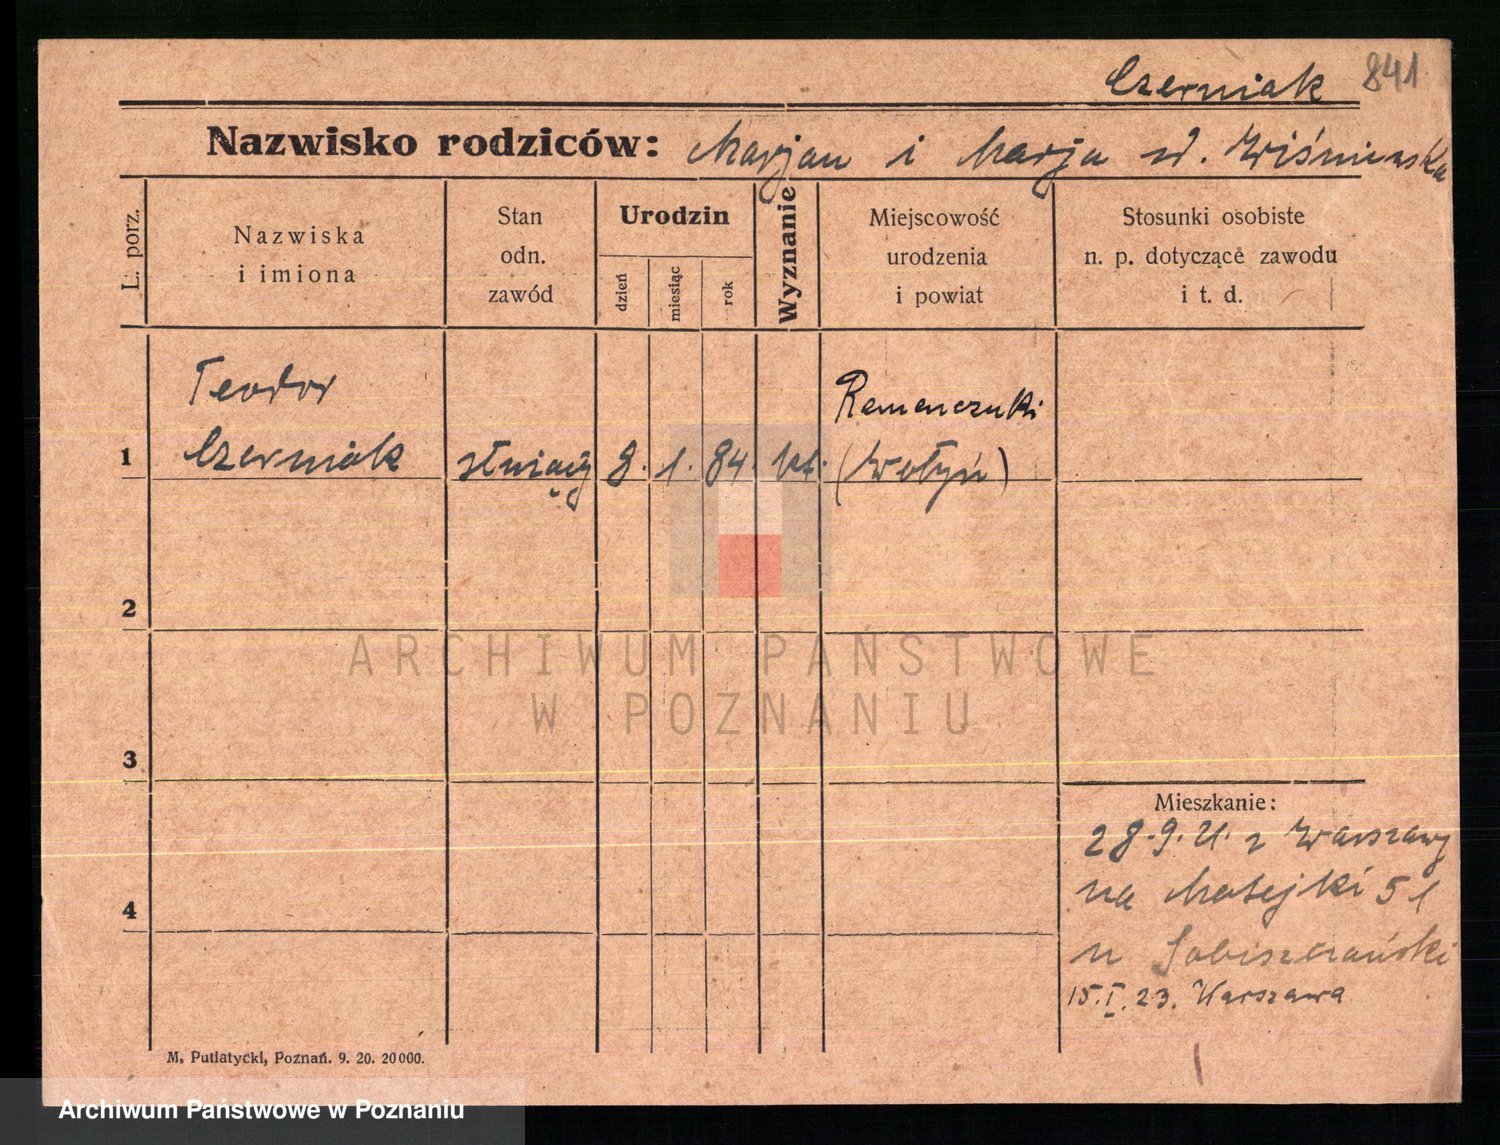 Czerniak 841
Nazwisko rodziców: Marjan i Marja d. Wiśniewska
L. porz.
Nazwiska
i imiona
Stan
odn.
zawód
Urodzin
dzień
miesiąc
rok
Wyznanie
Miejscowość
urodzenia
i powiat
Stosunki osobiste
n. p. dotyczące zawodu
i t. d.
Teodor
Czerniak
1
8. 1. 84. kt.
(Wołyń)
2
ARCHIWUM PAŃSTWOWE
W POZNANIU
3
Mieszkanie:
28.9.21. z Warszawy
na Matejki 51
15.I.23. Warszawa
4
M. Putiatycki, Poznań. 9. 20. 20000.
Archiwum Państwowe w Poznaniu